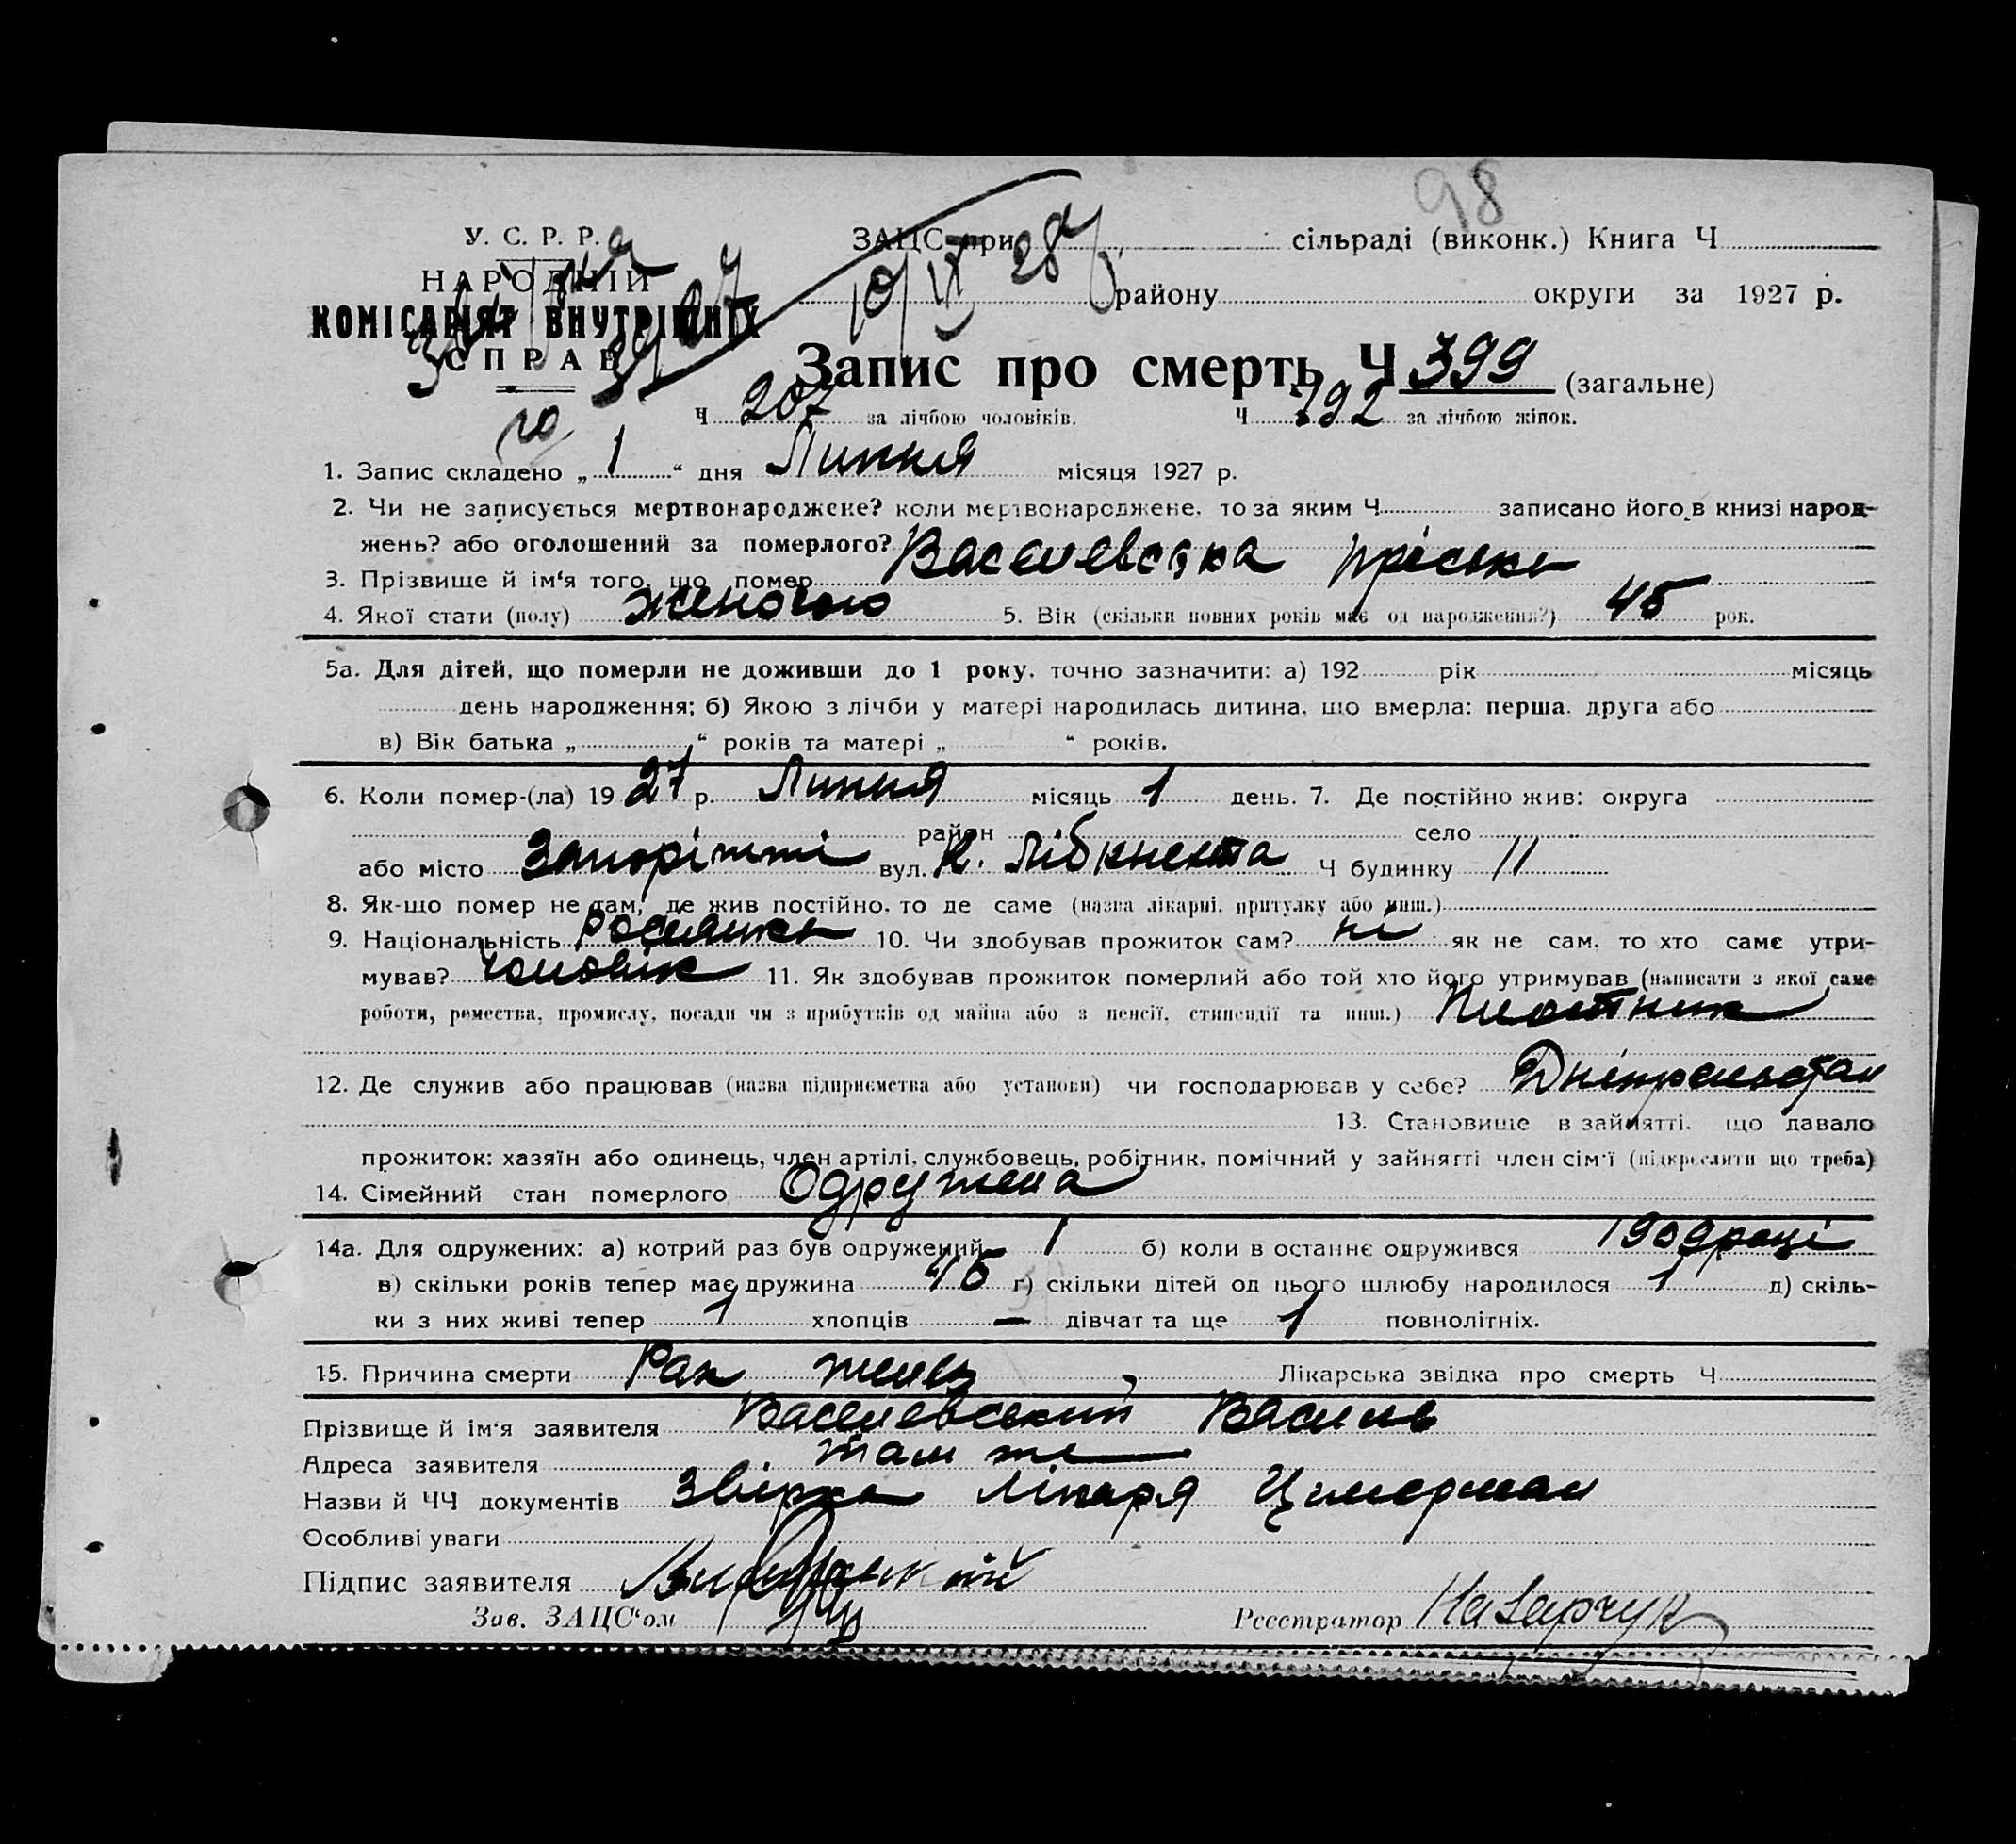 98
У. С. Р. Р.
НАРОДНІЙ
КОМІСАРІЯТ ВНУТРІШНІХ
СПРАВ
ЗАЦС при сільраді (виконк.) Книга Ч
10/IX 28
району округи за 1927 р.
Запис про смерть Ч 399 (загальне)
Ч 207 за лічбою чоловіків. Ч 192 за лічбою жінок.
1. Запис складено „ 1 “ дня Липня місяця 1927 р.
2. Чи не записується мертвонароджене? коли мертвонароджене, то за яким Ч записано його в книзі народ-
жень? або оголошений за померлого?
3. Прізвище й ім‘я того, що помер Васелевська Пріська
4. Якої стати (полу) Женочою 5. Вік (скільки повних років має од народження?) 45 рок.
5а. Для дітей, що померли не доживши до 1 року, точно зазначити: а) 192 рік місяць
день народження; б) Якою з лічби у матері народилась дитина, що вмерла: перша, друга або
в) Вік батька „ “ років та матері „ “ років.
6. Коли помер-(ла) 19 27 р. Липня місяць 1 день. 7. Де постійно жив: округа
район село
або місто Запоріжжі вул. К. Лібкнехта Ч будинку 11
8. Як-що помер не там, де жив постійно, то де саме (назва лікарні, притулку або инш.)
9. Національність Росиянка 10. Чи здобував прожиток сам? ні як не сам, то хто саме утри-
мував? Чоловік 11. Як здобував прожиток померлий або той хто його утримував (написати з якої саме
роботи, ремества, промислу, посади чи з прибутків од майна або з пенсії, стипендії та инш.) Плотник
12. Де служив або працював (назва підприємства або установи) чи господарював у себе? Дніпрельстан
13. Становище в зайнятті, що давало
прожиток: хазяїн або одинець, член артілі, службовець, робітник, помічний у зайнятті член сім‘ї (підкреслити що треба)
14. Сімейний стан померлого Одружена
14а. Для одружених: а) котрий раз був одружений 1 б) коли в останнє одружився 1909 році
в) скільки років тепер має дружина 45 г) скільки дітей од цього шлюбу народилося 1 д) скіль-
ки з них живі тепер 1 хлопців — дівчат та ще 1 повнолітніх.
15. Причина смерти Рак Лікарська звідка про смерть Ч
Прізвище й ім‘я заявителя Васелевський Василь
Адреса заявителя там же
Назви й ЧЧ документів Звірка лікаря Цимерман
Особливі уваги
Підпис заявителя
Зав. ЗАЦС‘ом Реєстратор